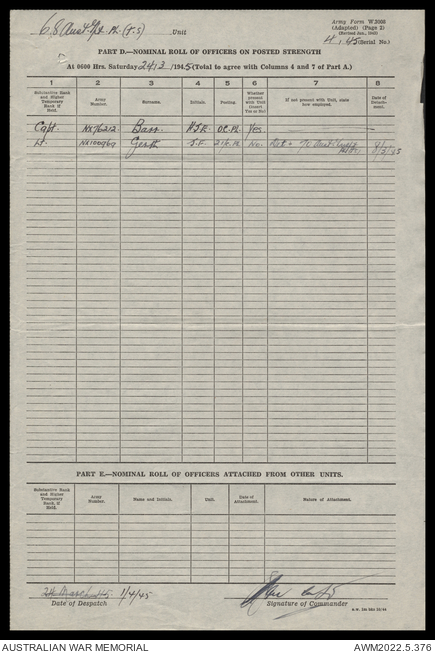 Army Form W.3008
(Adapted) (Page 2)
(Revised Jan., 1943)
68 Aust. Pl. (T.S) Unit
4 / 45 (Serial No.)
PART D.—NOMINAL ROLL OF OFFICERS ON POSTED STRENGTH
At 0600 Hrs. Saturday 24/3/1945 (Total to agree with Columns 4 and 7 of Part A.)
1 2 3 4 5 6 7 8
Substantive Rank and Higher Temporary Rank if Held.
Army Number.
Surname.
Initials.
Posting.
Whether present with Unit (Insert Yes or No)
If not present with Unit, state how employed.
Date of Detachment.
Capt. NX76212 Barr. O.C. Pl. Yes.
Lt. NX100969 J.F. No. Det. Aust 8/3/45
PART E.—NOMINAL ROLL OF OFFICERS ATTACHED FROM OTHER UNITS.
Substantive Rank and Higher Temporary Rank, if Held.
Army Number.
Name and Initials.
Unit.
Date of Attachment.
Nature of Attachment.
24 March 45 1/4/45
Date of Despatch
Signature of Commander
AUSTRALIAN WAR MEMORIAL
AWM2022.5.376